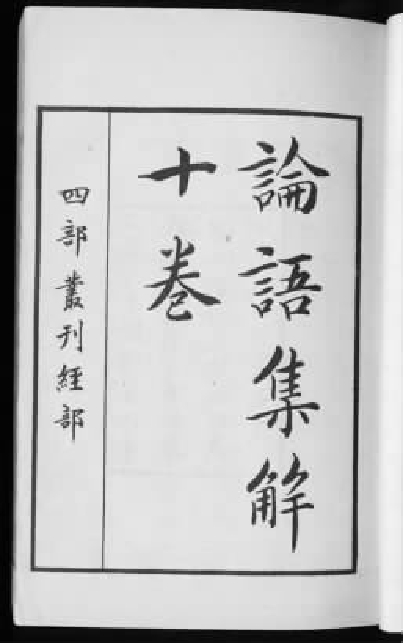 論語集解
十卷
四部叢刊經部